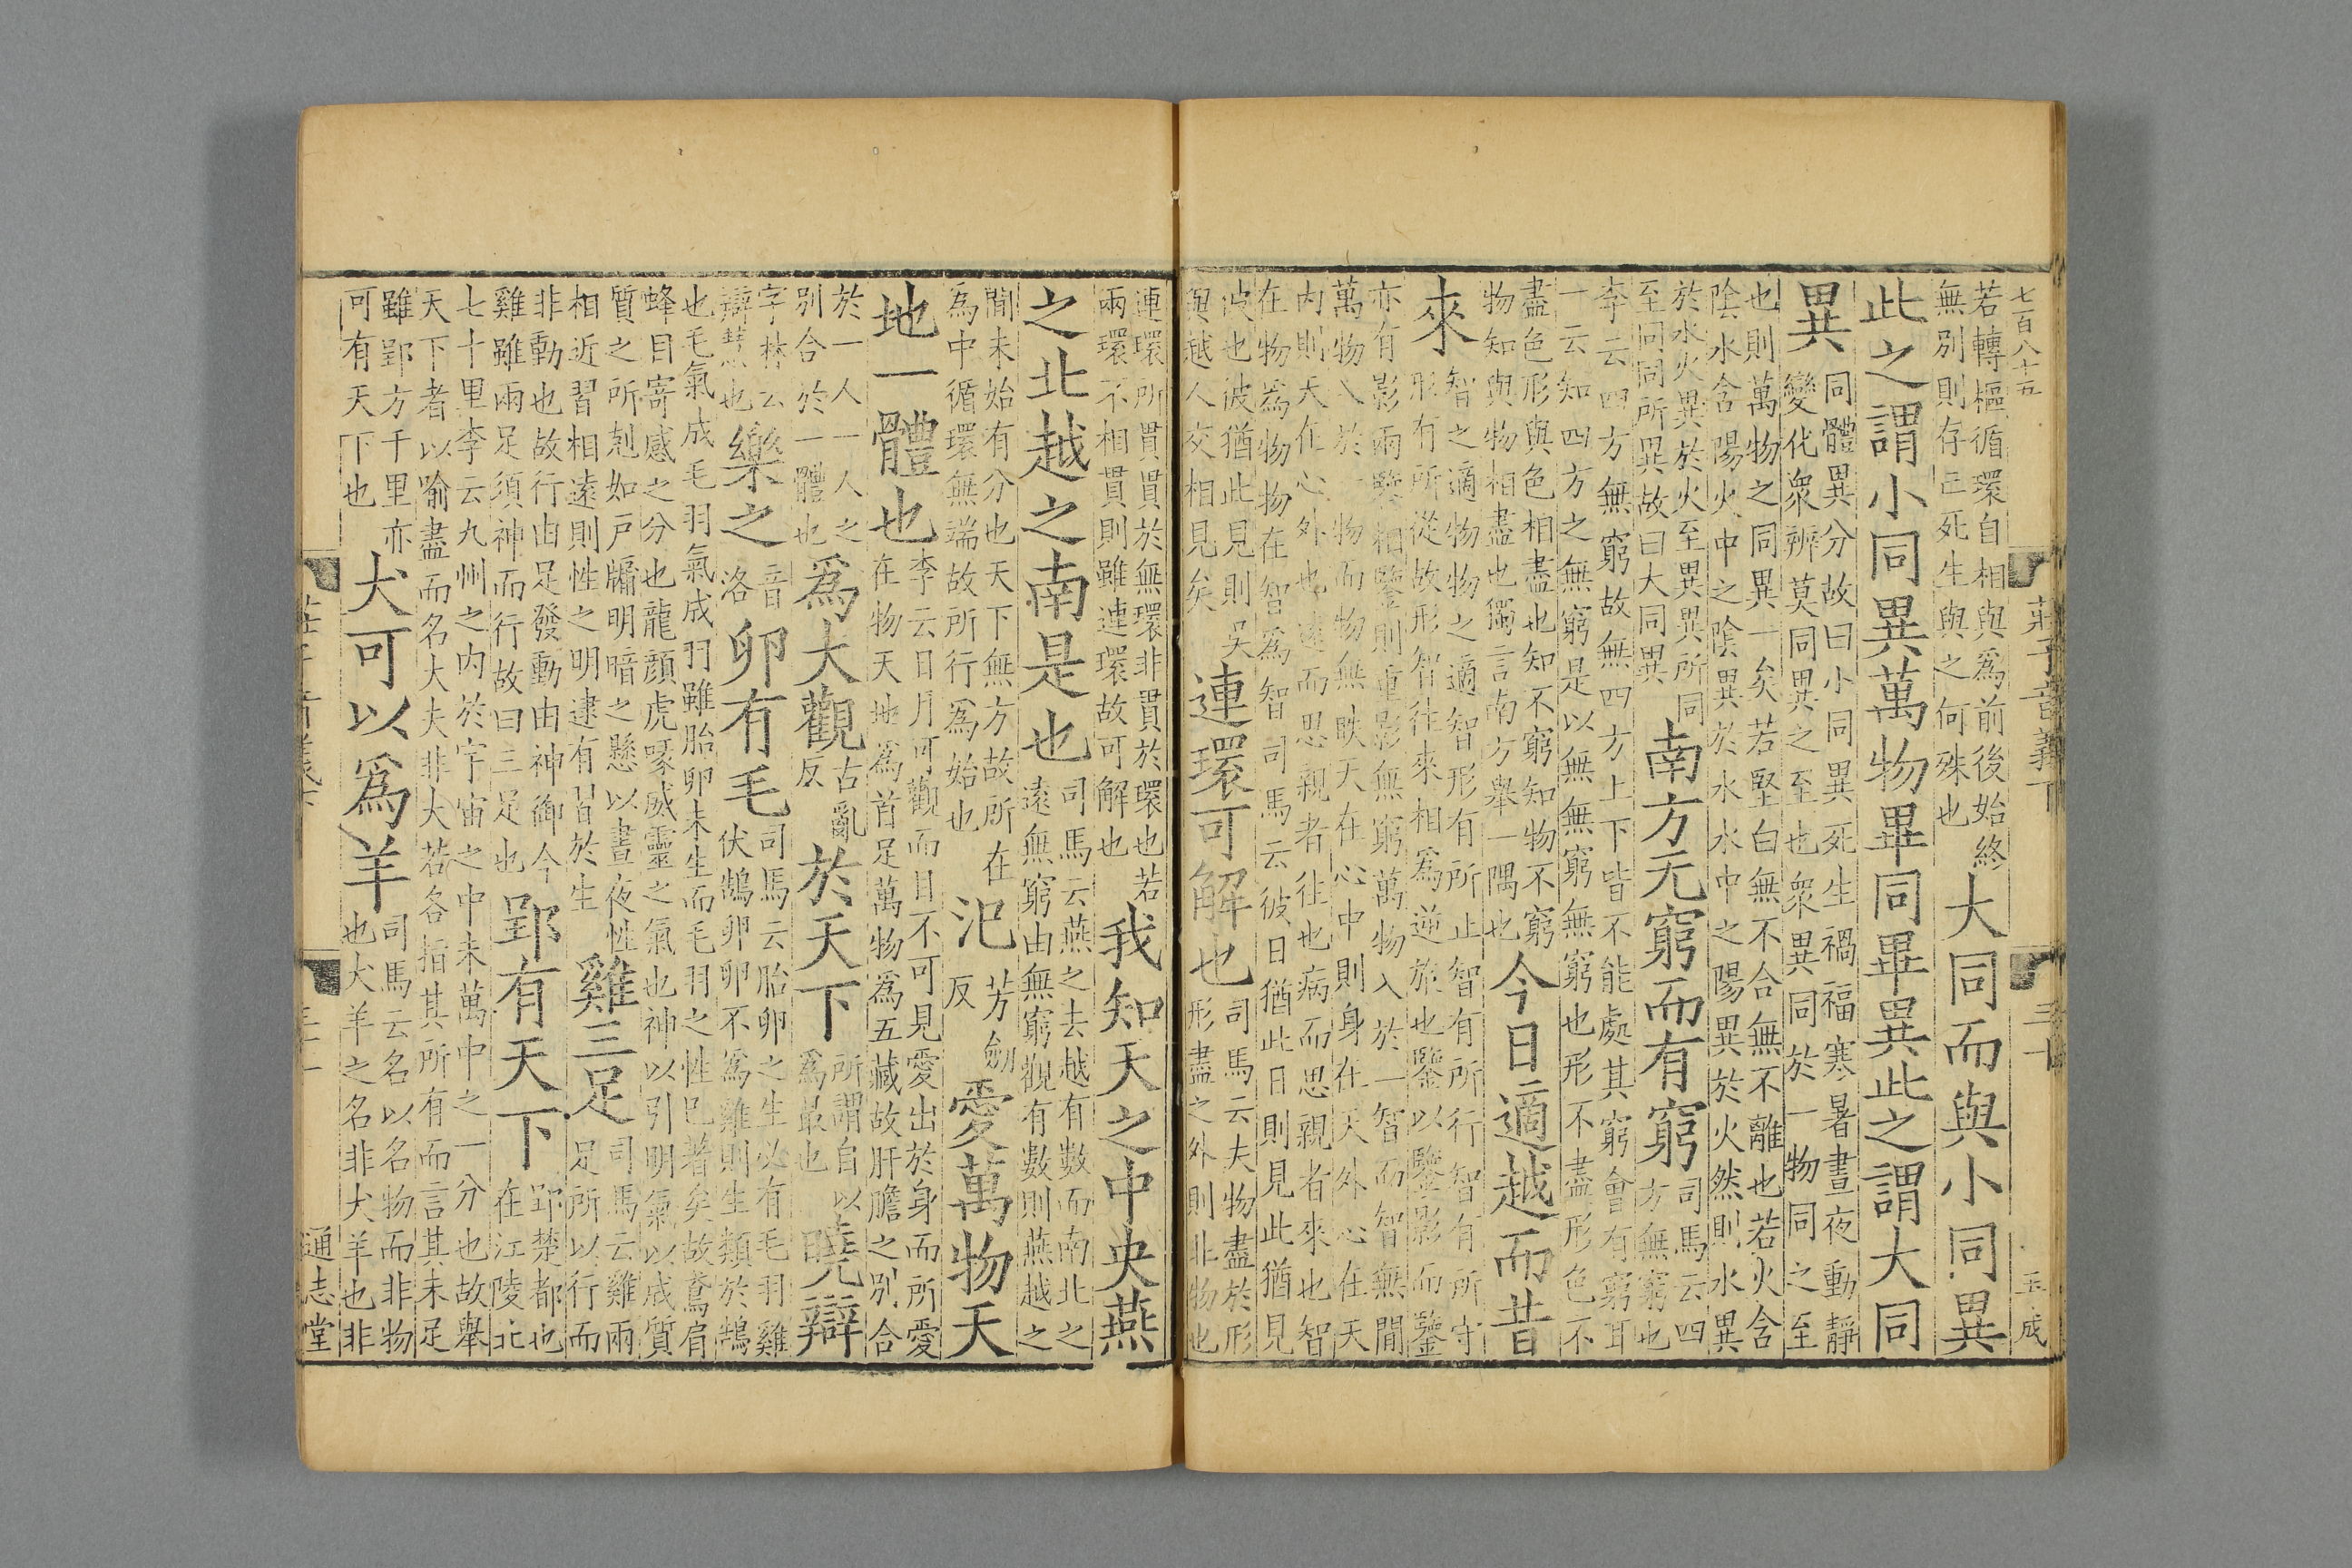 七百八十五 莊子音義下 三十 玉成
若轉樞循環自相與爲前後始終無別則存亡死生與之何殊也大同而與小同異
此之謂小同異萬物畢同畢異此之謂大同
異同體異分故曰小同異死生禍福寒暑晝夜動靜變化衆辨莫同異之至也衆異同於一物同之至
也則萬物之同異一矣若堅白無不合無不離也若火含陰水含陽火中之陰異於水水水中之陽異於火然則水異
於水火異於火至異異所同至同同所異故曰大同異南方无窮而有窮司馬云四方無窮也
李云四方無窮故無四方上下皆不能處其窮會有窮耳一云知四方之無窮是以無無窮無窮也形不盡形色不
盡色形與色相盡也知不窮知物不窮物知與物相盡也獨言南方舉一隅也今日適越而昔
來智之適物物之適智形有所止智有所行智有所守形有所從故形智往來相爲逆旅也鑒以鑒影而鑒
亦有影兩鑒相鑒則重影無窮萬物入於一智而智無間萬物入於一物而物無眹天在心中則身在天外心在天
內則天在心外也遠而思親者往也病而思親者來也智在物爲物物在智爲智司馬云彼日猶此日則見此猶見
彼也彼猶此見則吳與越人交相見矣連環可解也司馬云夫物盡於形形盡之外則非物也
連環所貫貫於無環非貫於環也若兩環不相貫則雖連環故可解也我知天之中央燕
之北越之南是也司馬云燕之去越有數而南北之遠無窮由無窮觀有數則燕越之
間未始有分也天下無方故所在爲中循環無端故所行爲始也氾芳劒反愛萬物天
地一體也李云日月可觀而目不可見愛出於身而所愛在物天地爲首足萬物爲五藏故肝膽之別合
於一人一人之別合於一體也爲大觀古亂反於天下所謂自以爲最也曉辯
字林云辯慧也樂之音洛卵有毛司馬云胎卵之生必有毛羽雞伏鵠卵卵不爲雞則生類於鵠
也毛氣成毛羽氣成羽雖胎卵未生而毛羽之性已著矣故鳶肩蜂目寄感之分也龍顏虎喙威靈之氣也神以引明氣以成質
質之所剋如戸牖明暗之懸以晝夜性相近習相遠則性之明遠有習於生雞三足司馬云雞兩足所以行而
非動也故行由足發動由神御今雞雖兩足須神而行故曰三足也郢有天下郢楚都也在江陵北
七十里李云九州之内於宇宙之中未萬中之一分也故舉天下者以喻盡而名大夫非大若各指其所有而言其未足
雖郢方千里亦可有天下也犬可以爲羊司馬云名以名物而非物也犬羊之名非犬羊也非
莊子音義下 三十一 通志堂